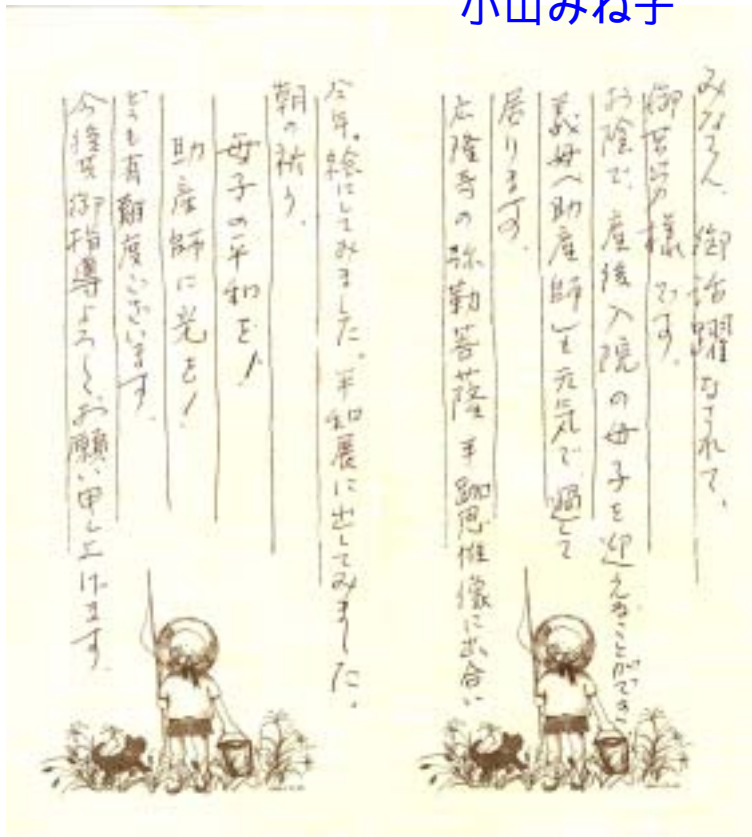 小山みね子
みなさん、御活躍なされて、
御苦労様です。
お陰で、産後入院の母子を迎えることができ
義母(助産師)も元気で過して
居ります。
広隆寺の弥勒菩薩半跏思惟像に出合い
今年。絵にしてみました。平和展に出してみました。
朝の祈り、
母子の平和を!
助産師に光を!
どうも有難度ございます。
今後共御指導よろしくお願い申し上げます。